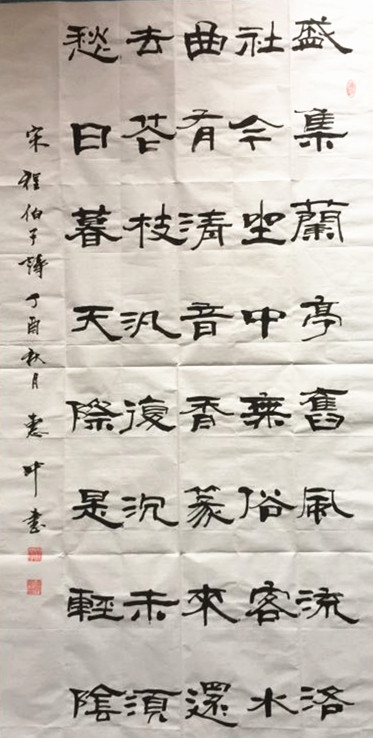 盛集蘭亭舊風流洛
社今坐中無俗客水
曲有清音香篆來還
去花枝汎復沉未須
愁日暮天際是輕陰
宋程伯子詩丁酉秋月惠叶書